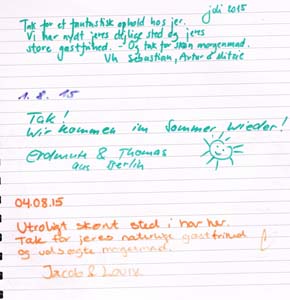 juli 2015
Tak for et fantastisk ophold hos jer.
Vi har nydt jeres dejlige sted og jeres
store gæstfrihed. - Og tak for skøn morgenmad.
Vh Sebastian, Artur & Mitzie
1.8.15
Tak!
Wir kommen im Sommer wieder!
Erdmute & Thomas
aus Berlin
04.08.15
Utroligt skønt sted i har her.
Tak for jeres naturlige gæstfrihed
og velsmagte morgenmad.
Jacob &